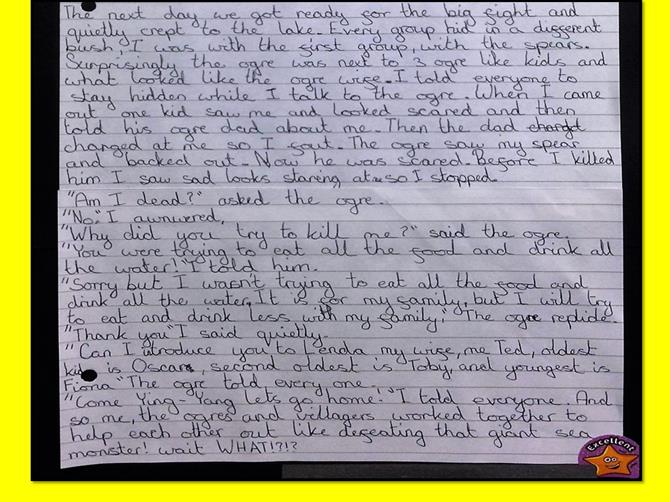 The next day we got ready for the big fight and
quietly crept to the lake. Every group hid in a different
bush, I was with the first group, with the spears.
Surprisingly the ogre was next to 3 ogre like kids and
what looked like the ogre wife. I told everyone to
stay hidden while I talk to the ogre. When I came
out one kid saw me and looked scared and then
told his ogre dad about me. Then the dad chargd
charged at me so I fout. The ogre saw my spear
and backed out. Now he was scared. Before I killed
him I saw sad looks staring at so I stopped.
"Am I dead?" asked the ogre.
"No." I awnwered.
"Why did you try to kill me?" said the ogre.
"You were trying to eat all the food and drink all
the water!" I told him.
"Sorry but I wasn't trying to eat all the food and
drink all the water, It is for my family, but I will try
to eat and drink less with my family." The ogre replide.
"Thank you" I said quietly.
"Can I introduce you to Fenda my wife, me Ted, oldest
kid is Oscar, second oldest is Toby, and youngest is
Fiona" The ogre told, every one.
"Come Ying-Yang lets go home!" I told everyone. And
so me, the ogres and villagers worked together to
help each other out like defeating that giant sea
monster! wait WHAT!?!?
Excellent